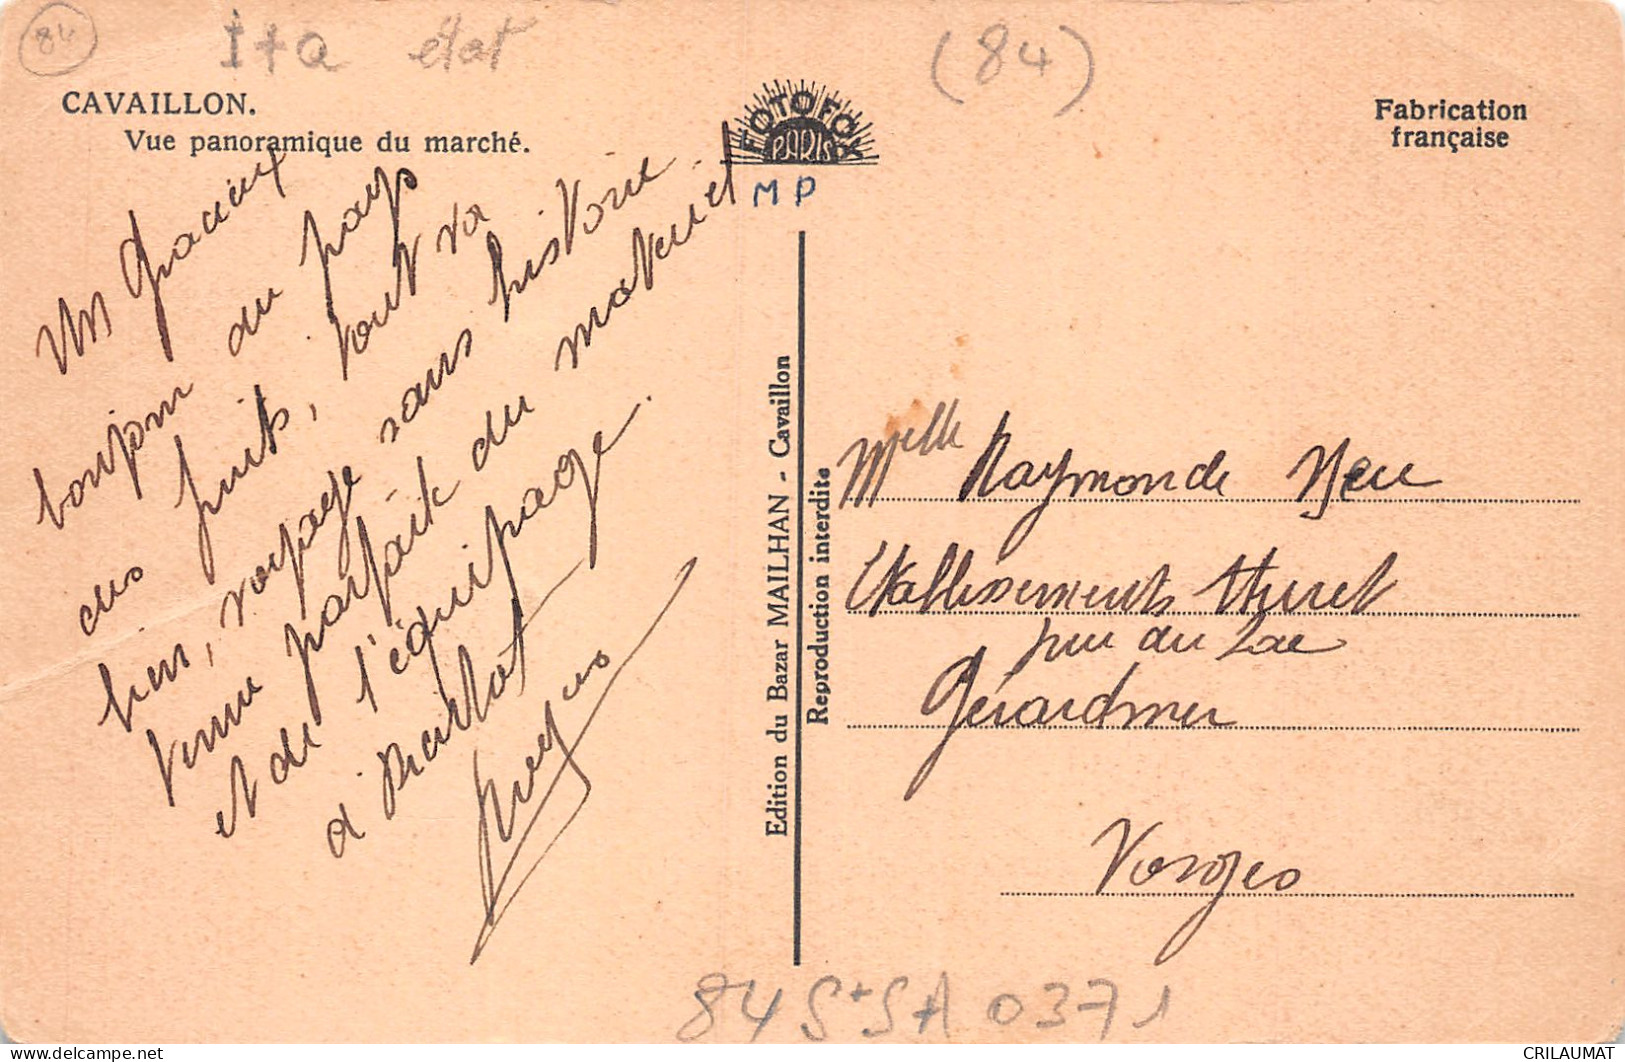 84
état
(84)
CAVAILLON.
Vue panoramique du marché.
FOTOFOX
PARIS
M P
Fabrication
française
Un gracieux
bonjour du pays
des fruits, tout va
bien, voyage sans histoire
tenue parfaite du matériel
et de l'équipage.
à
Edition du Bazar MAILHAN - Cavaillon
Reproduction interdite
Melle Raymonde
Etablissements
rue du Lac
Gérardmer
Vosges
84 S+SA 0371
CRILAUMAT